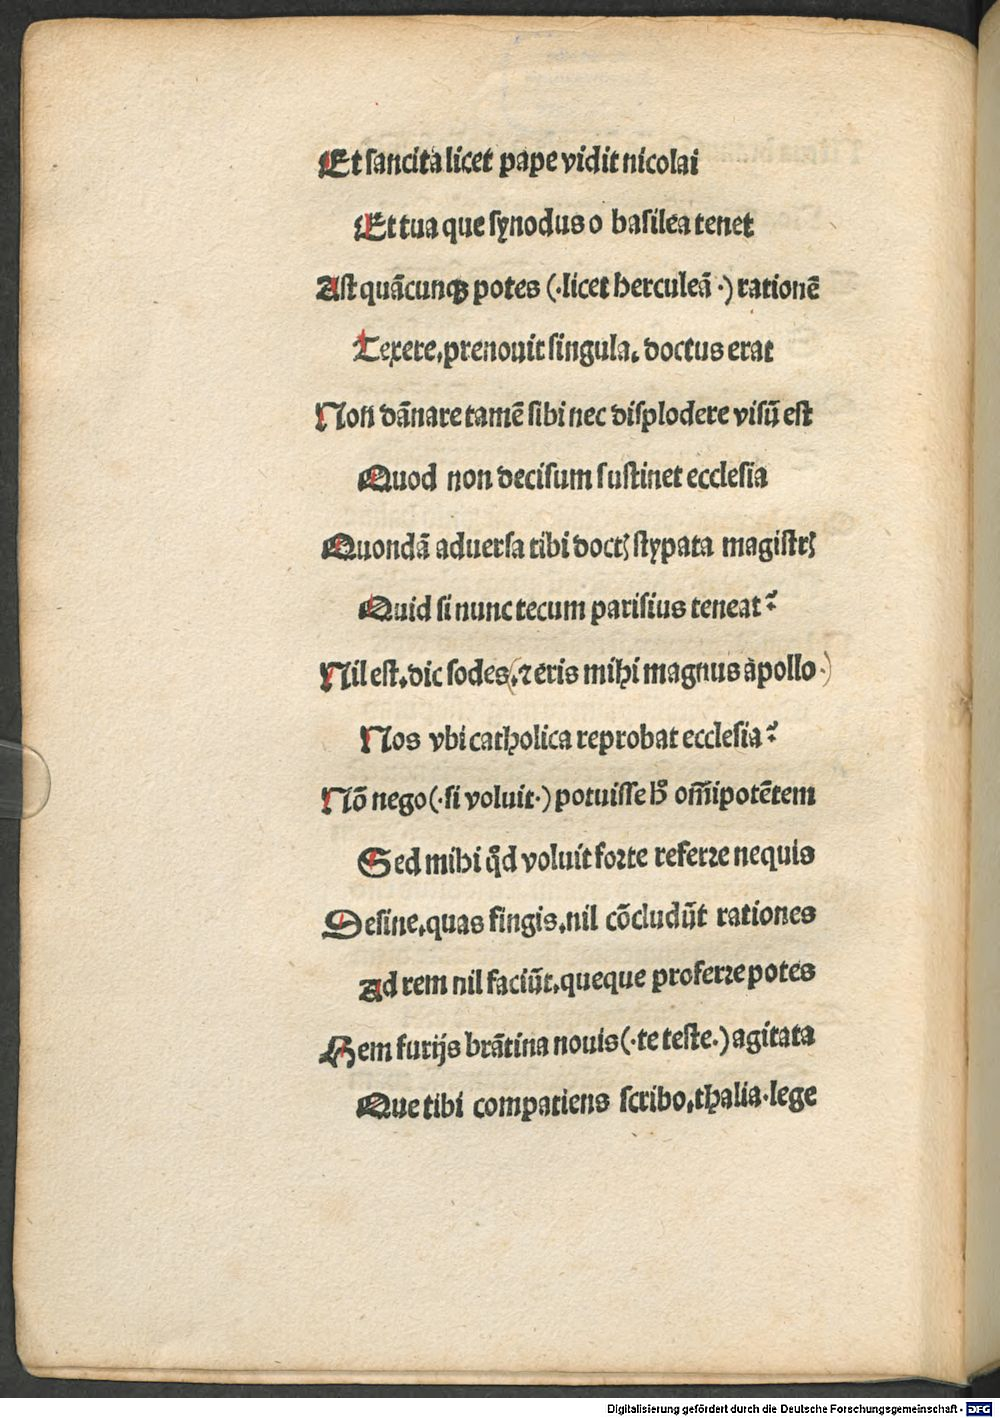 Et sancita licet pape vidit nicolai
Et tua que synodus o basilea tenet
Ast quācunqꝫ potes (·licet herculeā·) rationē
Texere, prenouit singula, doctus erat
Non dānare tamē sibi nec displodere visū est
Quod non decisum sustinet ecclesia
Quondā aduersa tibi doctꝭ stypata magistrꝭ
Quid si nunc tecum parisius teneat?
Nil est, dic sodes (, ⁊ eris mihi magnus apollo·)
Nos vbi catholica reprobat ecclesia?
Nō nego (·si voluit·) potuisse omīpotētem
Sed mihi qd voluit forte referre nequis
Desine, quas fingis, nil cōcludūt rationes
Ad rem nil faciūt, queque proferre potes
Hem furijs brātina nouis (·te teste·) agitata
Que tibi compatiens scribo, thalia·lege
Digitalisierung gefördert durch die Deutsche Forschungsgemeinschaft - DFG